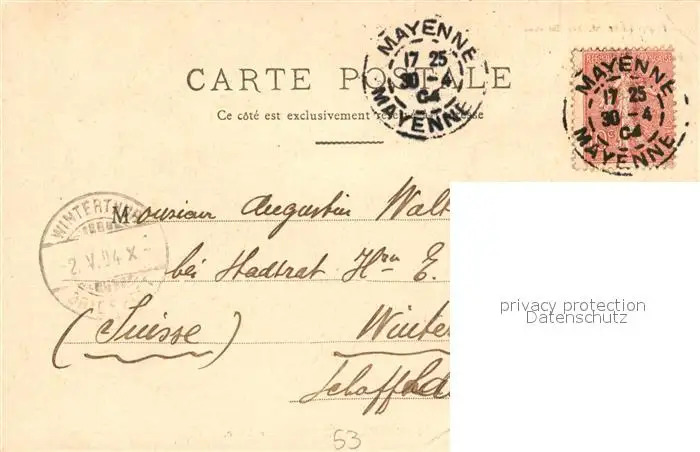 MAYENNE
17 25
30 - 4
04
MAYENNE
MAYENNE
17 25
30 - 4
04
MAYENNE
CARTE POSTALE
Ce côté est exclusivement réservé à l'adresse
WINTERTHUR
-2.V.04.X-
Monsieur Augustin Walt
bei Stadtrat Hrn E.
(Suisse) Winter
privacy protection
Datenschutz
53